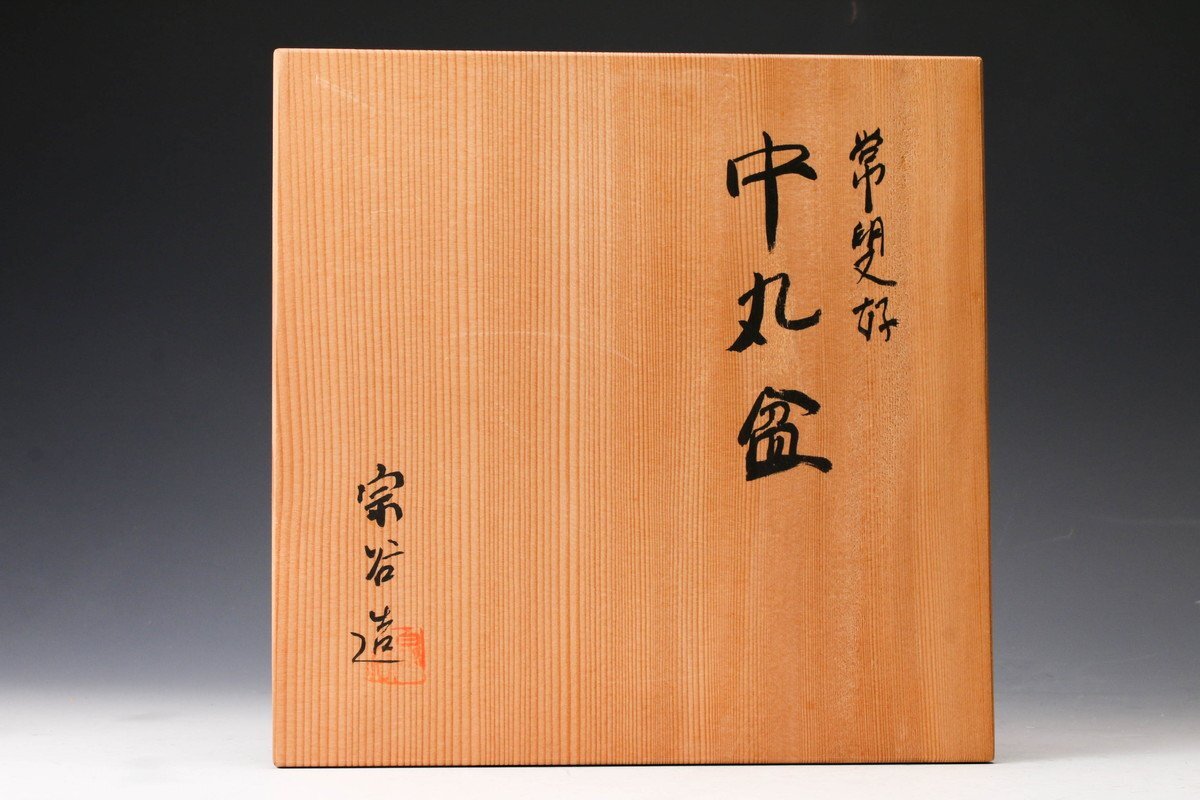 常叟好
中丸盆
宗谷造